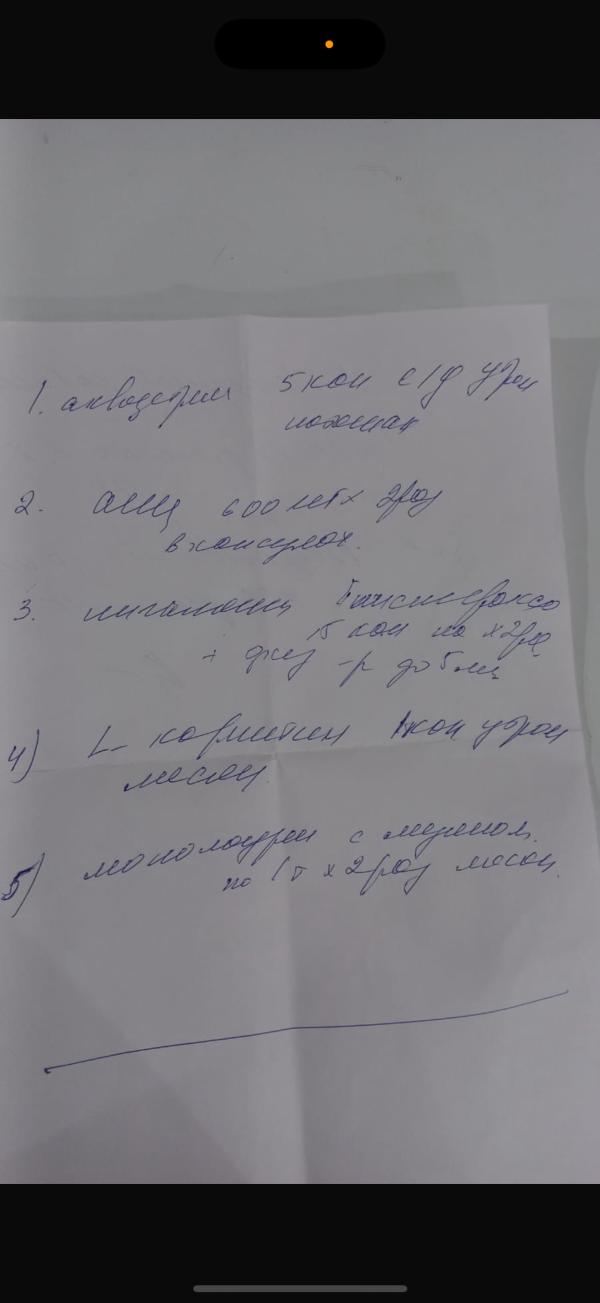 1. аквадетрим 5 кап с/д утром
2. АЦЦ 600 мг х 2 раз
в капсулах.
3. ингаляции
15 кап на х 2 р
+ физ -р до 5 мл
4) L- карнитин 1 кап утром
месяц.
5) монолаурин с
по 1т х 2 раз месяц.